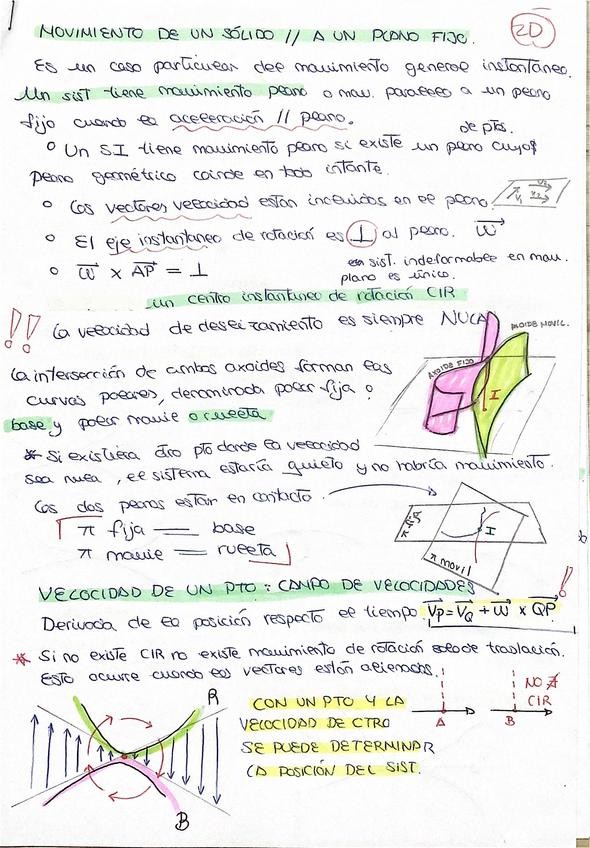 MOVIMIENTO DE UN SÓLIDO // A UN PLANO FIJO.
2D
Es un caso particular del movimiento general instantáneo.
Un sist tiene movimiento plano o mov. paralelo a un plano
fijo cuando la aceleración // plano.
de pts.
° Un SI tiene movimiento plano si existe un plano cuyo
plano geométrico coinde en todo intante.
° Los vectores velocidad están incluidos en el plano
V1 V2
° El eje instantaneo de rotación es ⊥ al plano. W
° W x AP = ⊥
en sist. indeformable en mov.
plano es único.
un centro instantaneo de rotación CIR
!! La velocidad de deslizamiento es siempre NULA
AXOIDE MOVIL.
AXOIDE FIJO
I
La intersección de ambos axoides forman las
curvas polares, denominada polar fija o
base y polar movil o ruleta
* Si existiera otro pto donde la velocidad
sea nula, el sistema estaría quieto y no habría movimiento.
Los dos planos están en contacto.
π fija — base
π movil — ruleta
π fijo
I
π movil
VELOCIDAD DE UN PTO : CAMPO DE VELOCIDADES
!
Derivada de la posición respecto al tiempo. Vp = VQ + W x QP
* Si no existe CIR no existe movimiento de rotación solo de traslación.
Esto ocurre cuando los vectores están alienados.
R
B
CON UN PTO Y LA
VELOCIDAD DE OTRO
SE PUEDE DETERMINAR
LA POSICIÓN DEL SIST.
A
B
NO ∄
CIR